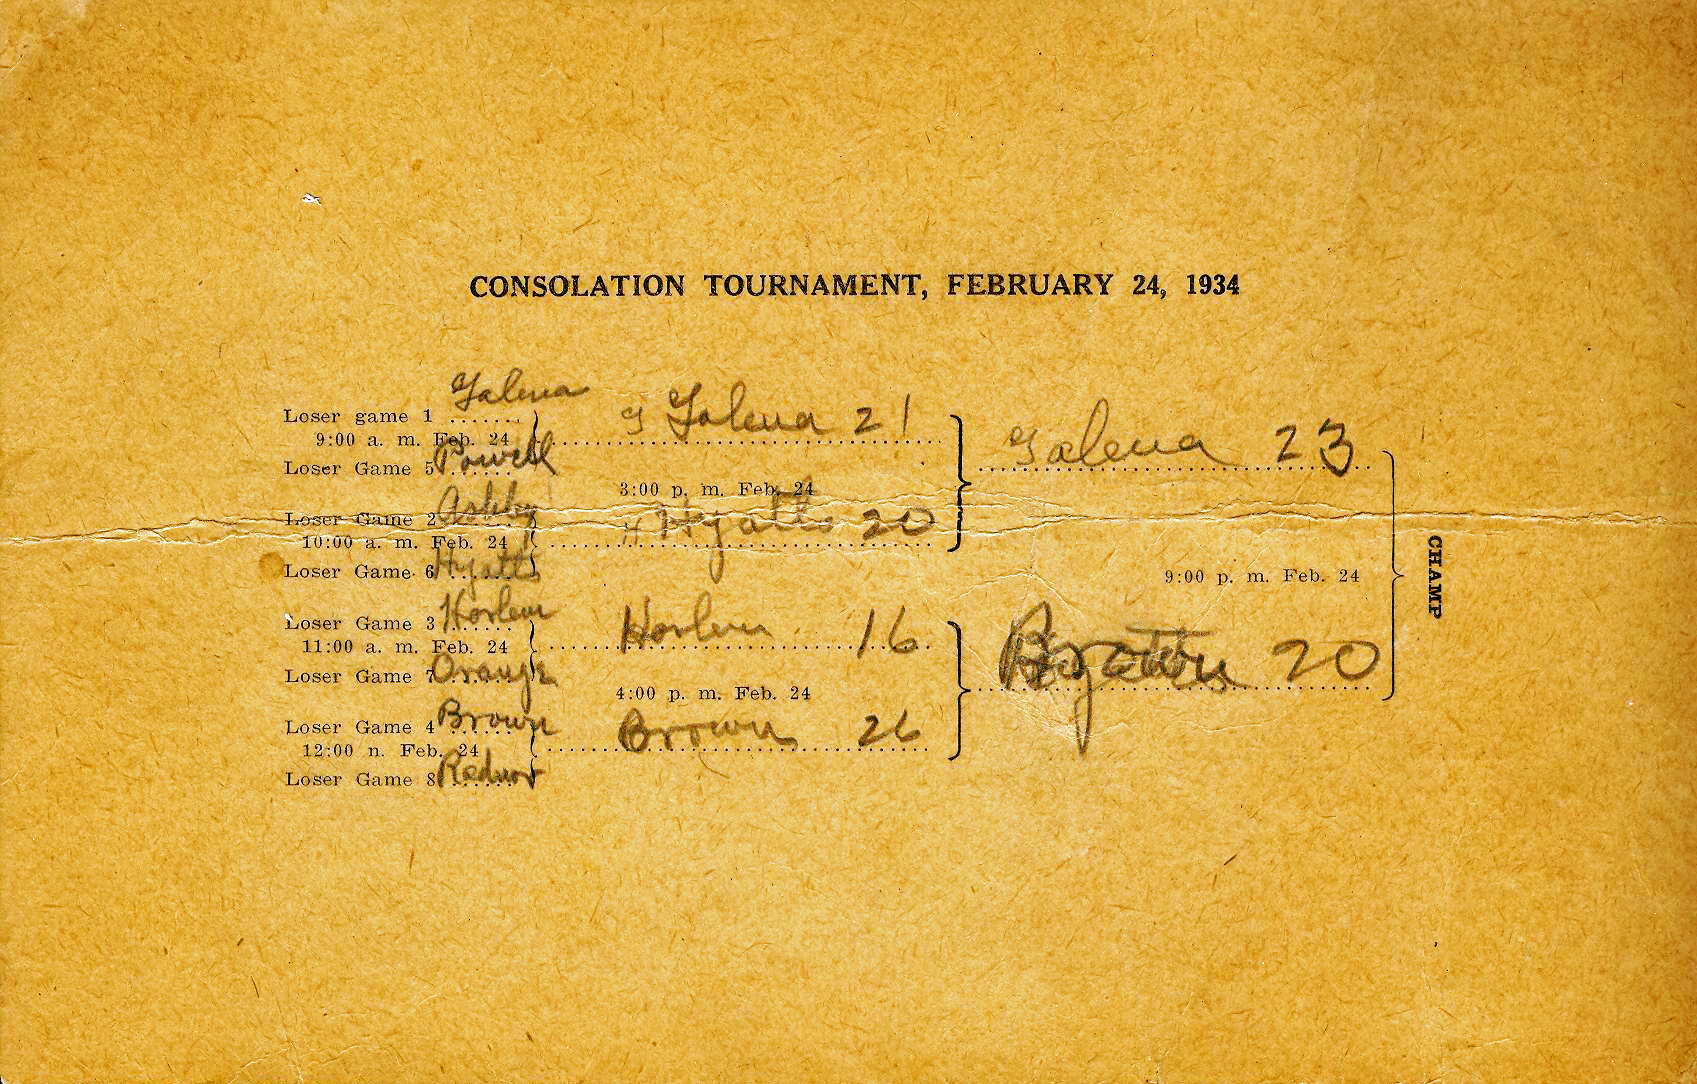 CONSOLATION TOURNAMENT, FEBRUARY 24, 1934
Galena
Loser game 1 ......
9:00 a. m. Feb. 24
Powell
Loser Game 5 ......
Galena 21
3:00 p. m. Feb. 24
Ashby
Loser Game 2 ......
10:00 a. m. Feb. 24
Hyatts
Loser Game 6 ......
H Hyatts 20
Galena 23
9:00 p. m. Feb. 24
CHAMP
Harlem
Loser Game 3 ......
11:00 a. m. Feb. 24
Orange
Loser Game 7 ......
Harlem 16
4:00 p. m. Feb. 24
Brown
Loser Game 4 ......
12:00 n. Feb. 24
Radnor
Loser Game 8 ......
Brown 26
20